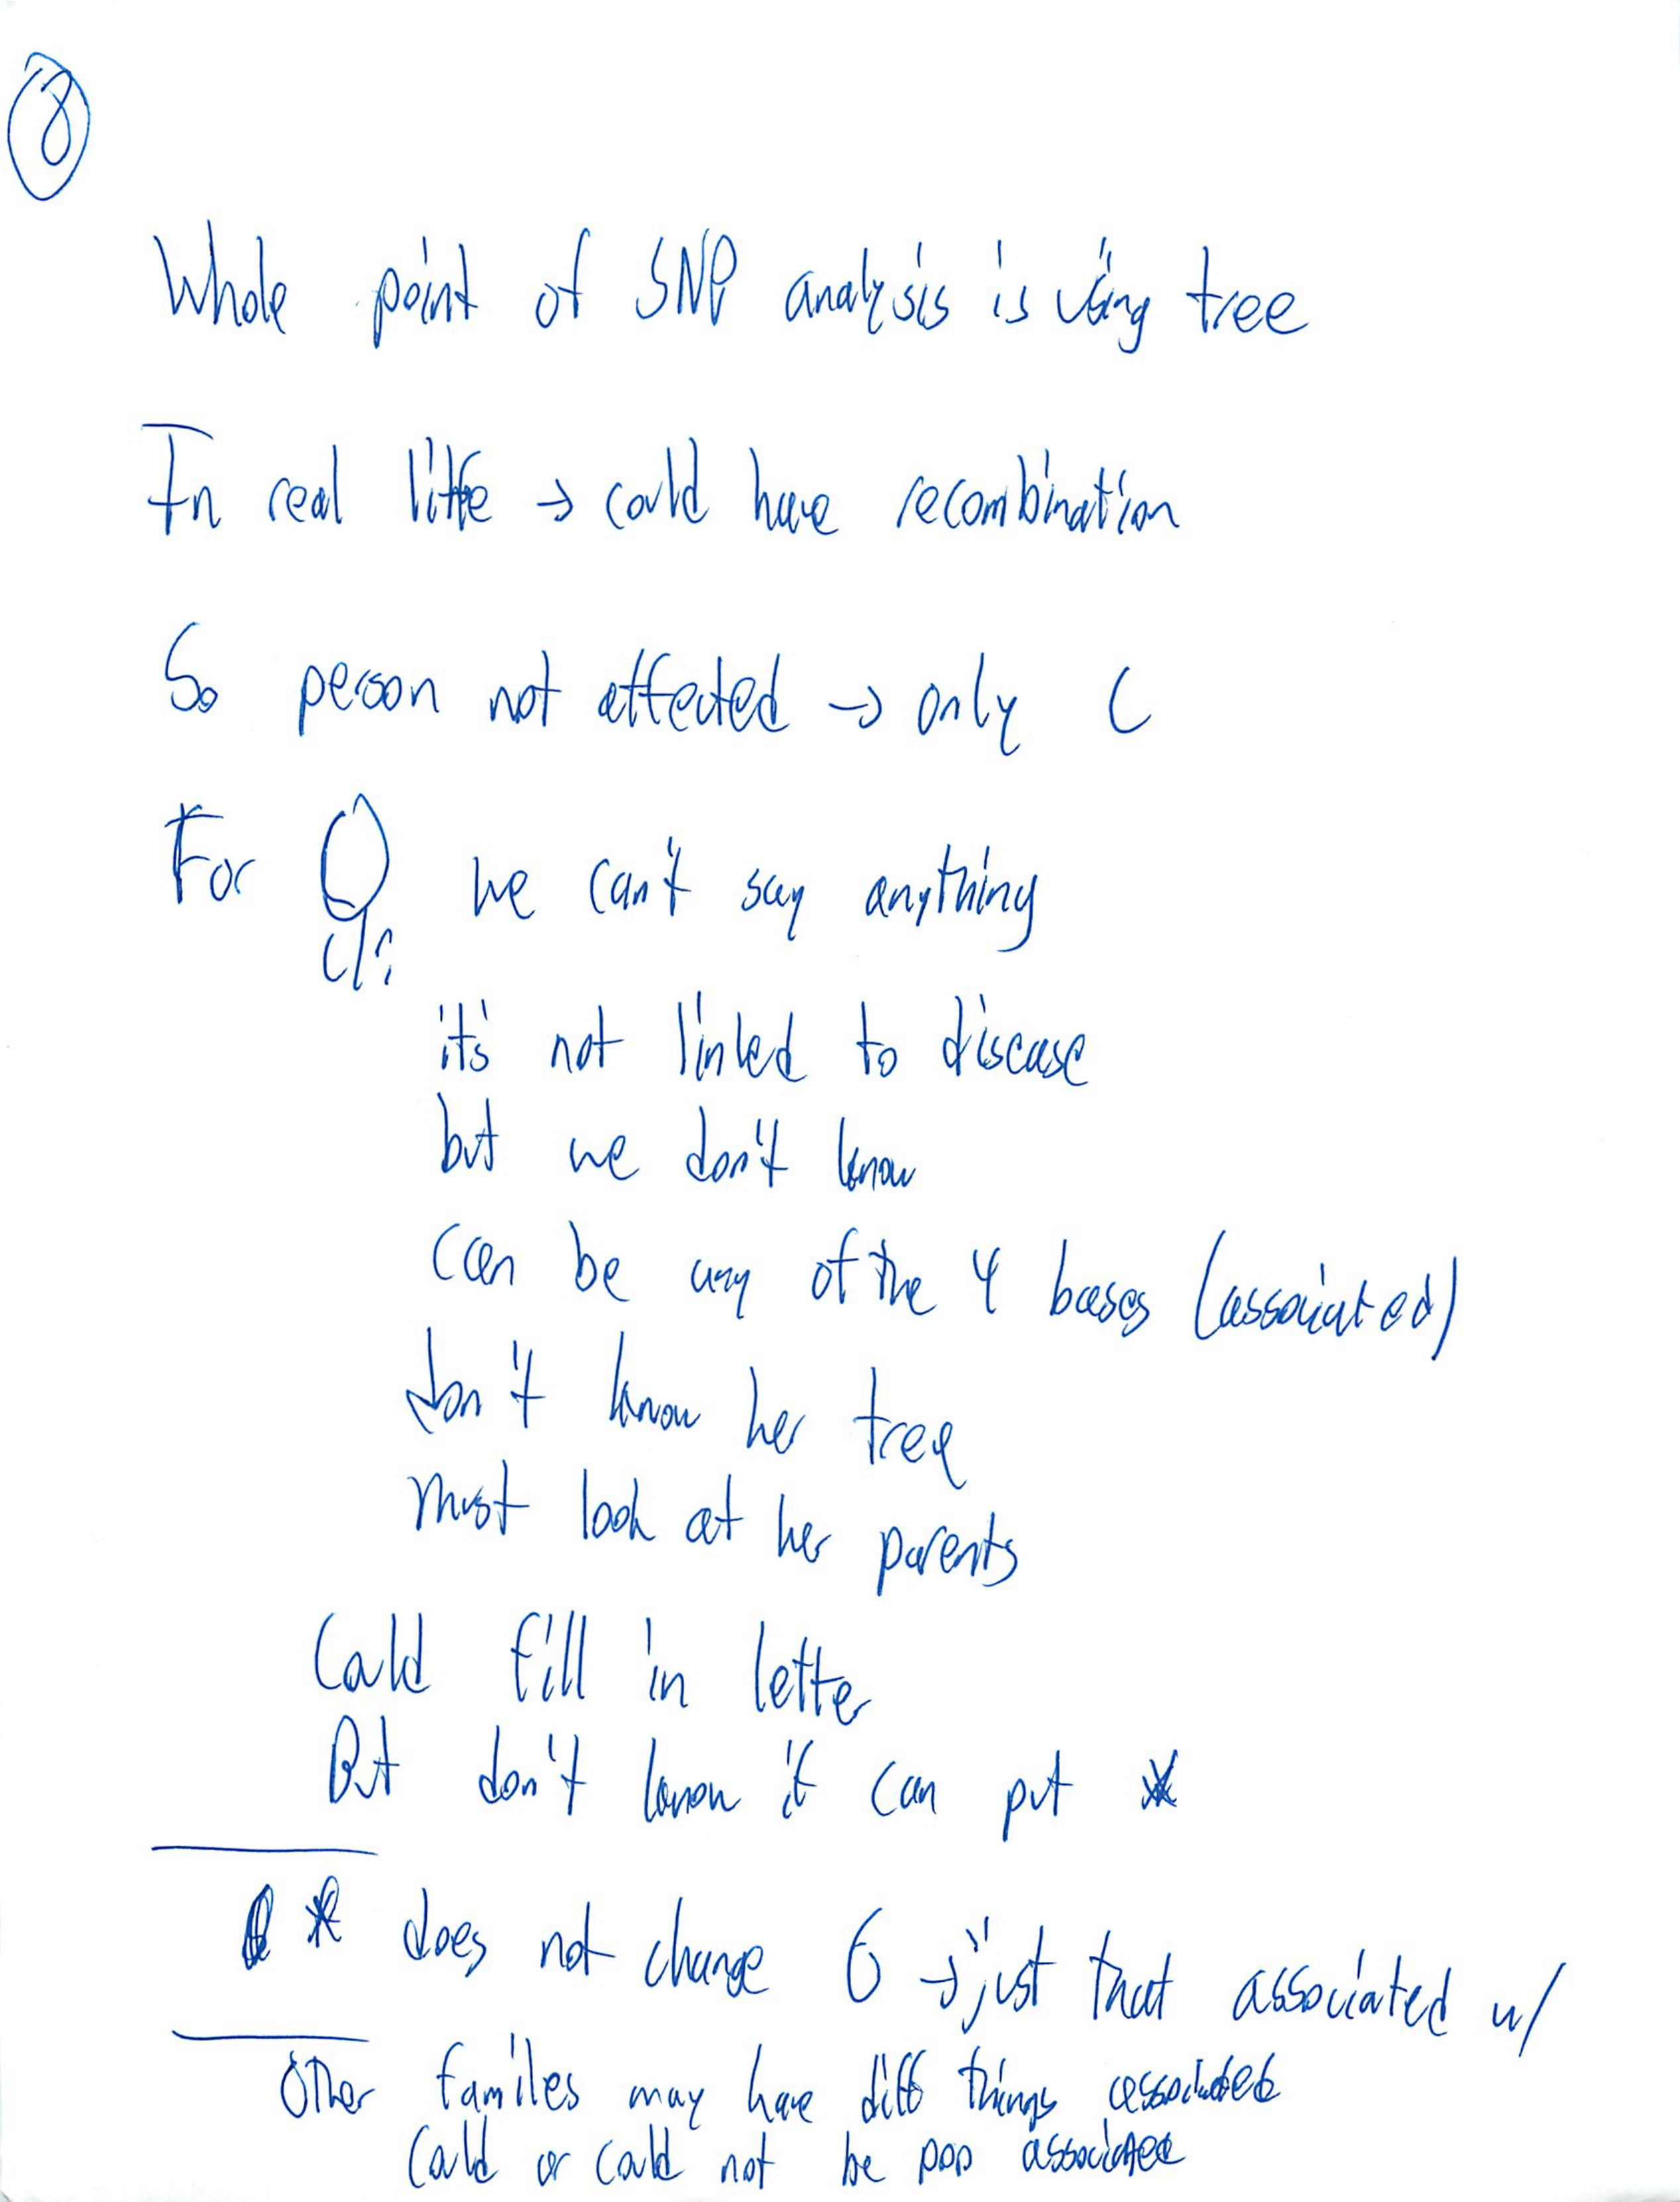 8
Whole point of SNP analysis is using tree
In real life → could have recombination
So person not affected → only C
For we can't say anything
C/?
it's not linked to disease
but we don't know
can be any of the 4 bases (associated)
don't know her tree
must look at her parents
Could fill in letter
But don't know if can put *
* does not change G → just that associated w/
Other familes may have diff things associated
Could or could not be pop associated